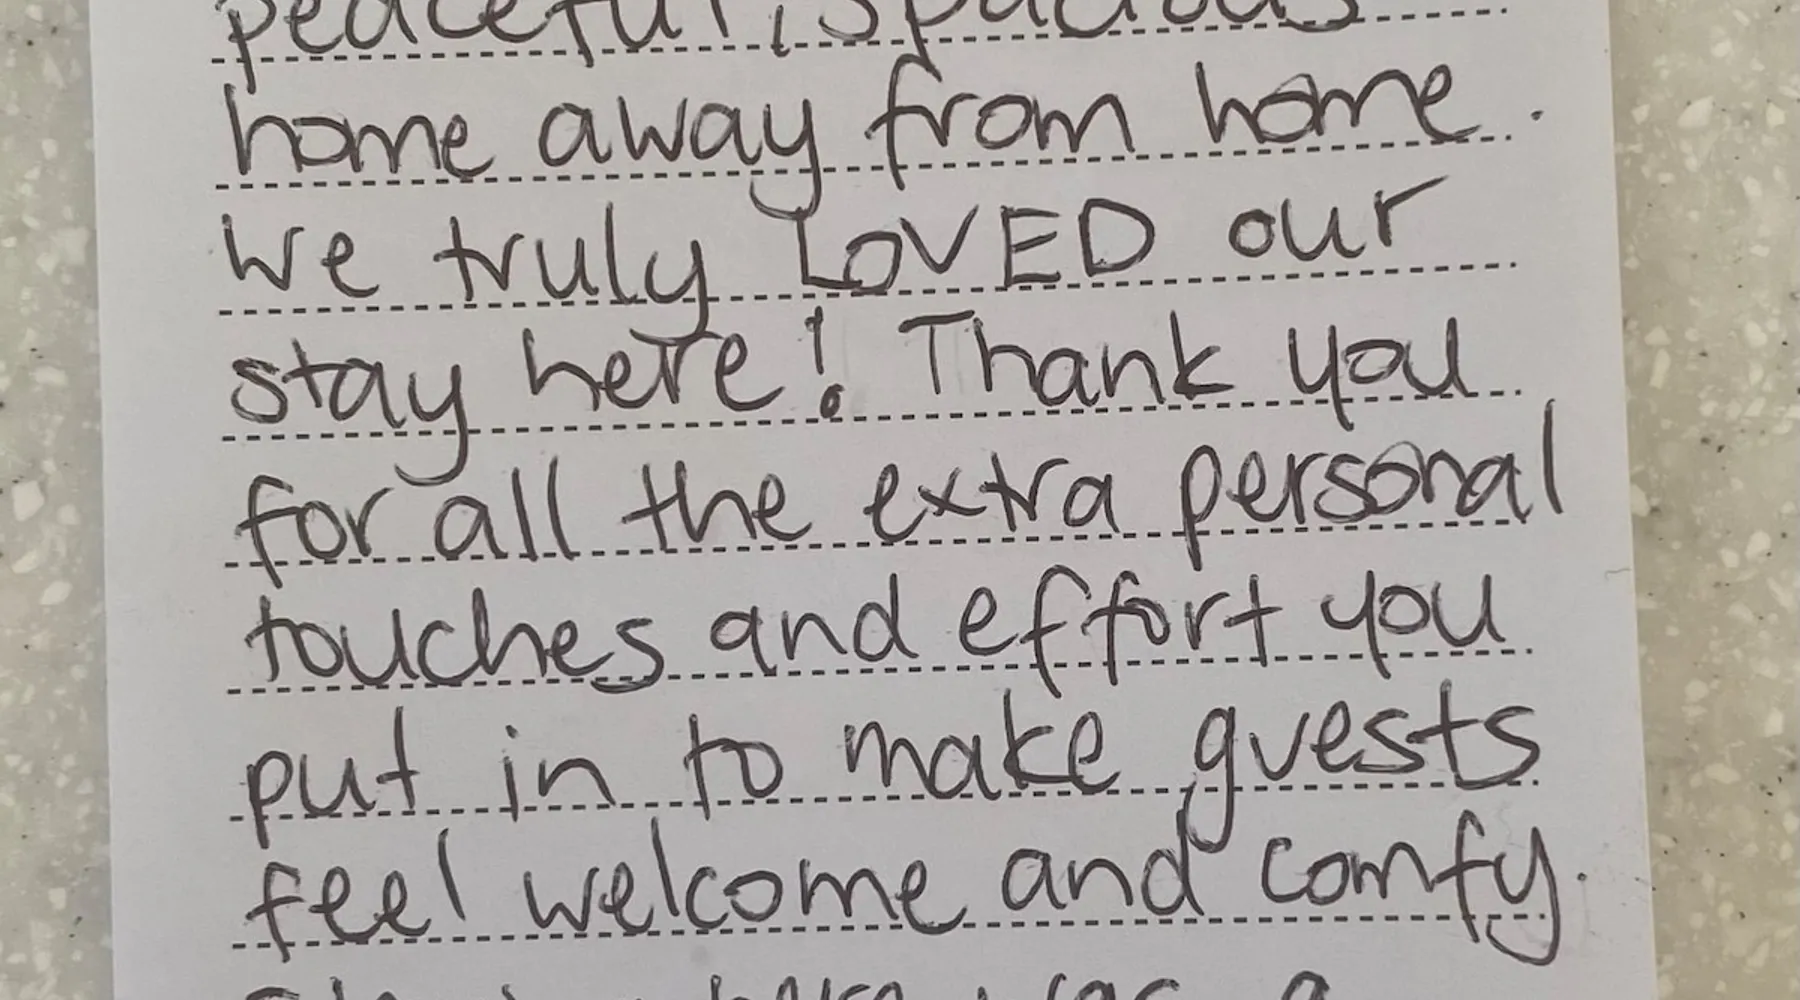 peaceful, spacious
home away from home.
We truly LOVED our
stay here! Thank you
for all the extra personal
touches and effort you
put in to make guests
feel welcome and comfy.